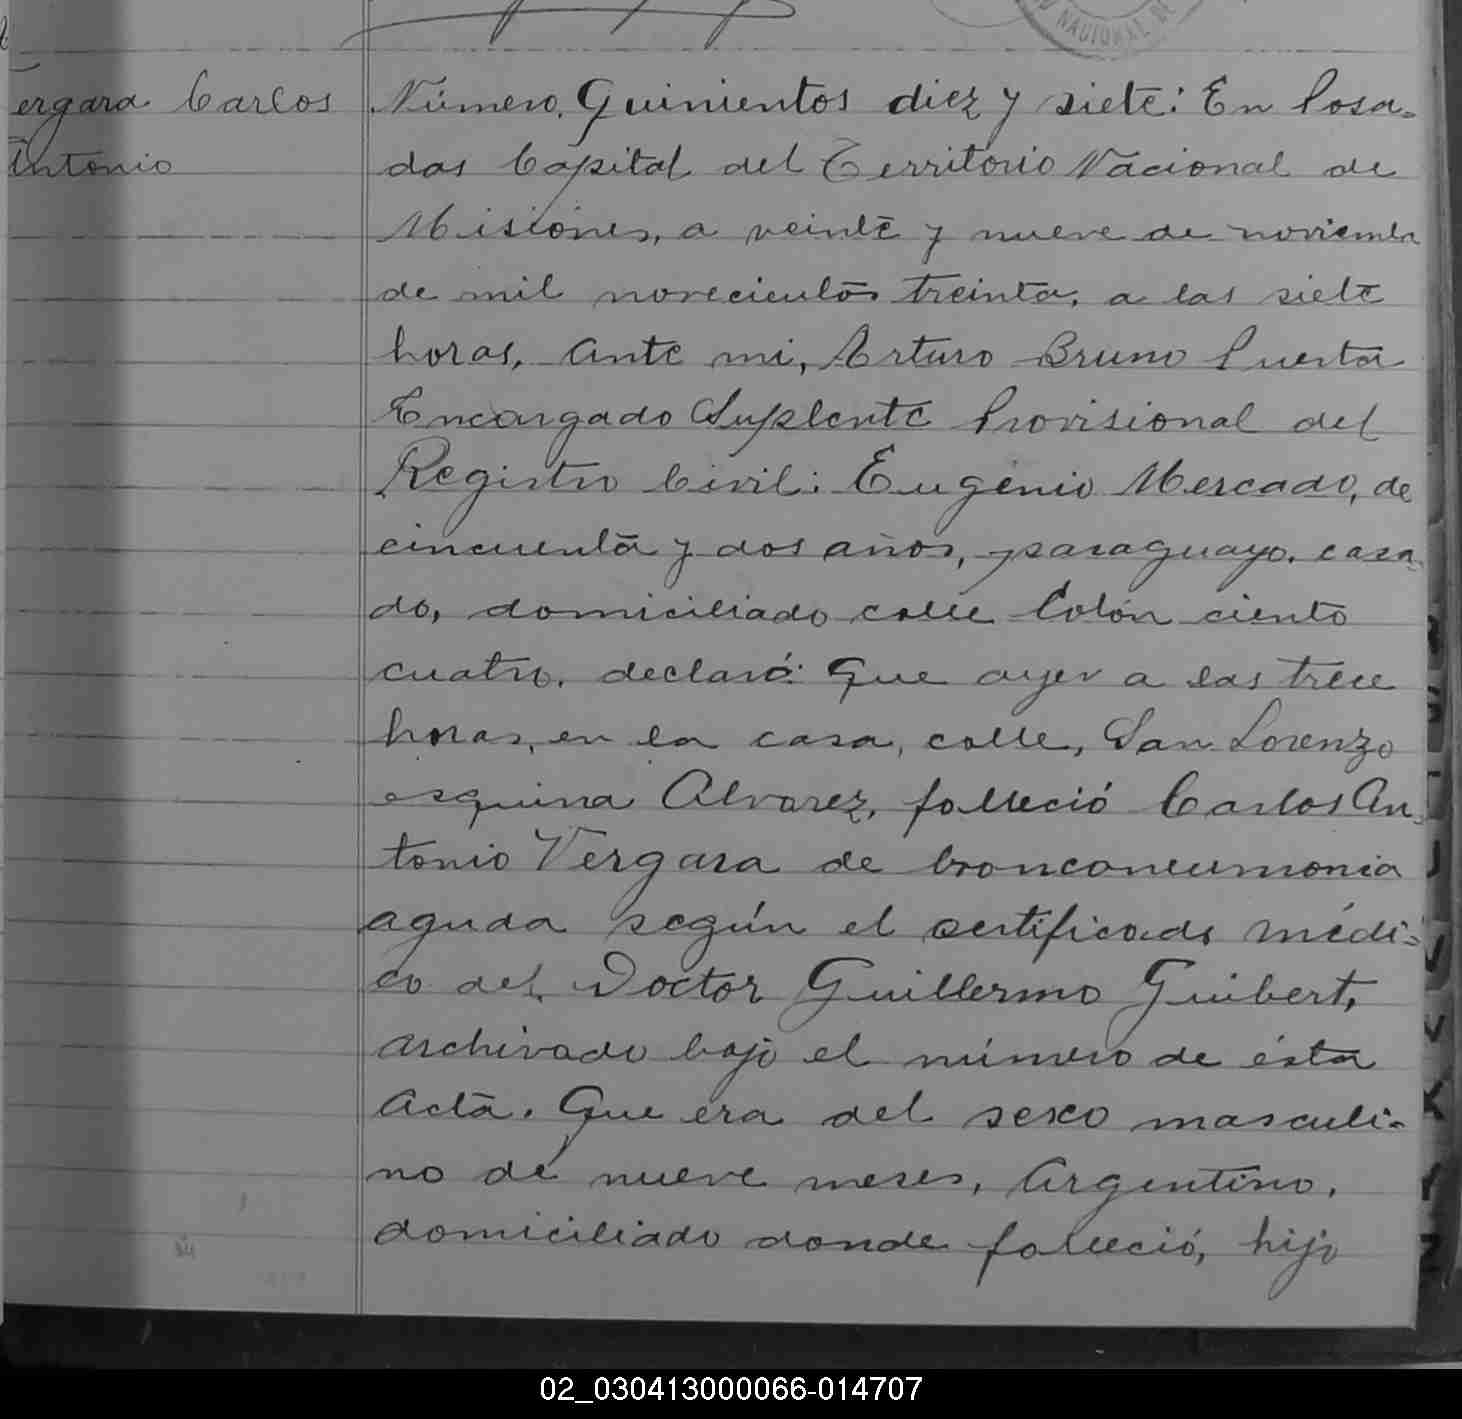 NACIONAL DE
Vergara Carlos
Antonio
Número Quinientos diez y siete: En Posa-
das Capital del Territorio Nacional de
Misiones, a veinte y nueve de noviembre
de mil novecientos treinta, a las siete
horas, ante mi, Arturo Bruno Puerta
Encargado Suplente Provisional del
Registro Civil: Eugenio Mercado, de
cincuenta y dos años, paraguayo, casa-
do, domiciliado calle Colón ciento
cuatro, declaró: Que ayer a las trece
horas, en la casa, calle, San Lorenzo
esquina Alvarez, falleció Carlos An-
tonio Vergara de bronconeumonia
aguda según el certificado médi-
co del Doctor Guillermo Guibert,
archivado bajo el número de ésta
acta. Que era del sexo masculi-
no de nueve meses, Argentino,
domiciliado donde falleció, hijo
02_030413000066-014707